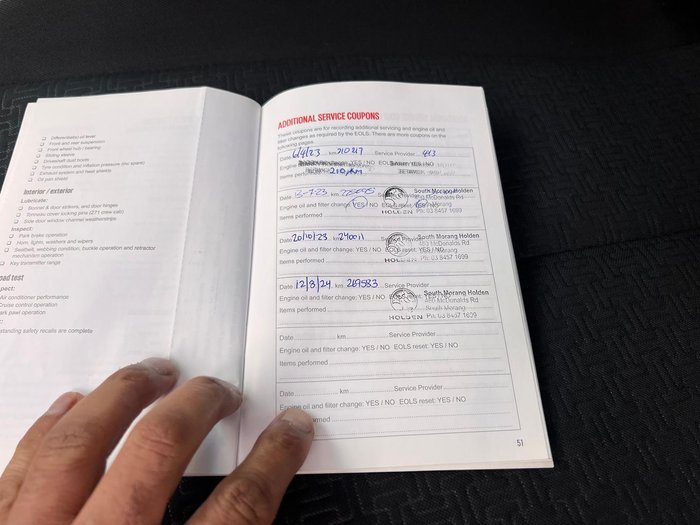 Differential oil level
Front and rear suspension
Front wheel hub / bearing
Sliding sleeve
Driveshaft dust boots
Tyre condition and inflation pressure (inc spare)
Exhaust system and heat shields
Oil pan shield
Interior / exterior
Lubricate:
Bonnet & door strikers, and door hinges
Tonneau cover locking pins (271 crew cab)
Side door window channel weatherstrips
Inspect:
Park brake operation
Horn, lights, washers and wipers
Seatbelt, webbing condition, buckle operation and retractor
mechanism operation
Key transmitter range
ad test
pect:
Air conditioner performance
Cruise control operation
ark pawl operation
standing safety recalls are complete
ADDITIONAL SERVICE COUPONS
These coupons are for recording additional servicing and engine oil and
filter changes as required by the EOLS. There are more coupons on the
following pages.
Date 6/4/23 km 210217 Service Provider 4x3
YES / NO EOLS YES / NO
Items performed 210,km
Date 18-7-23 km Service Provider South Morang Holden
Engine oil and filter change: YES / NO EOLS 460 McDonalds Rd
Items performed HOLDEN Ph: 03 8457 1699
Date 20/10/23 km 240011 Service Provider South Morang Holden
Engine oil and filter change: YES / NO EOLS 460 McDonalds Rd
Items performed HOLDEN Ph: 03 8457 1699
Date 12/8/24 km 269583 Service Provider South Morang Holden
Engine oil and filter change: YES / NO EOLS reset: YES / NO 460 McDonalds Rd
Items performed South Morang
HOLDEN Ph: 03 8457 1699
Date km Service Provider
Engine oil and filter change: YES / NO EOLS reset: YES / NO
Items performed
Date km Service Provider
Engine oil and filter change: YES / NO EOLS reset: YES / NO
formed
51